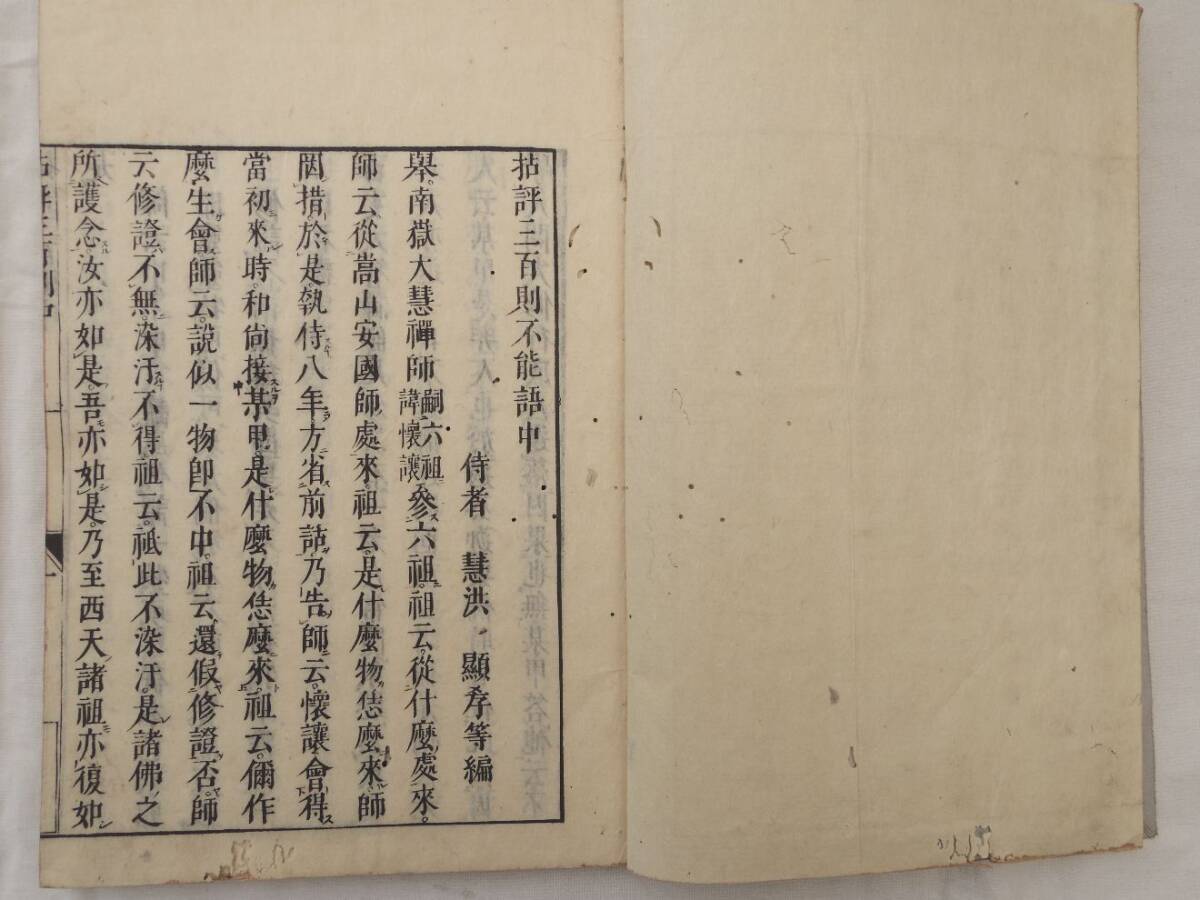 拈評三百則不能語中
侍者 慧洪 顯孝等編
舉。南嶽大慧禪師嗣六祖諱懷讓參六祖。祖云。從什麼處來。
師云。從嵩山安國師處來。祖云。是什麼物恁麼來。師
罔措。於是執侍八年。方省前話。乃告師云。懷讓會得
當初來時。和尚接某甲。是什麼物恁麼來。祖云。儞作
麼生會。師云。說似一物即不中。祖云。還假修證否。師
云。修證不無。染汙不得。祖云。祇此不染汙。是諸佛之
所護念。汝亦如是。吾亦如是。乃至西天諸祖亦復如